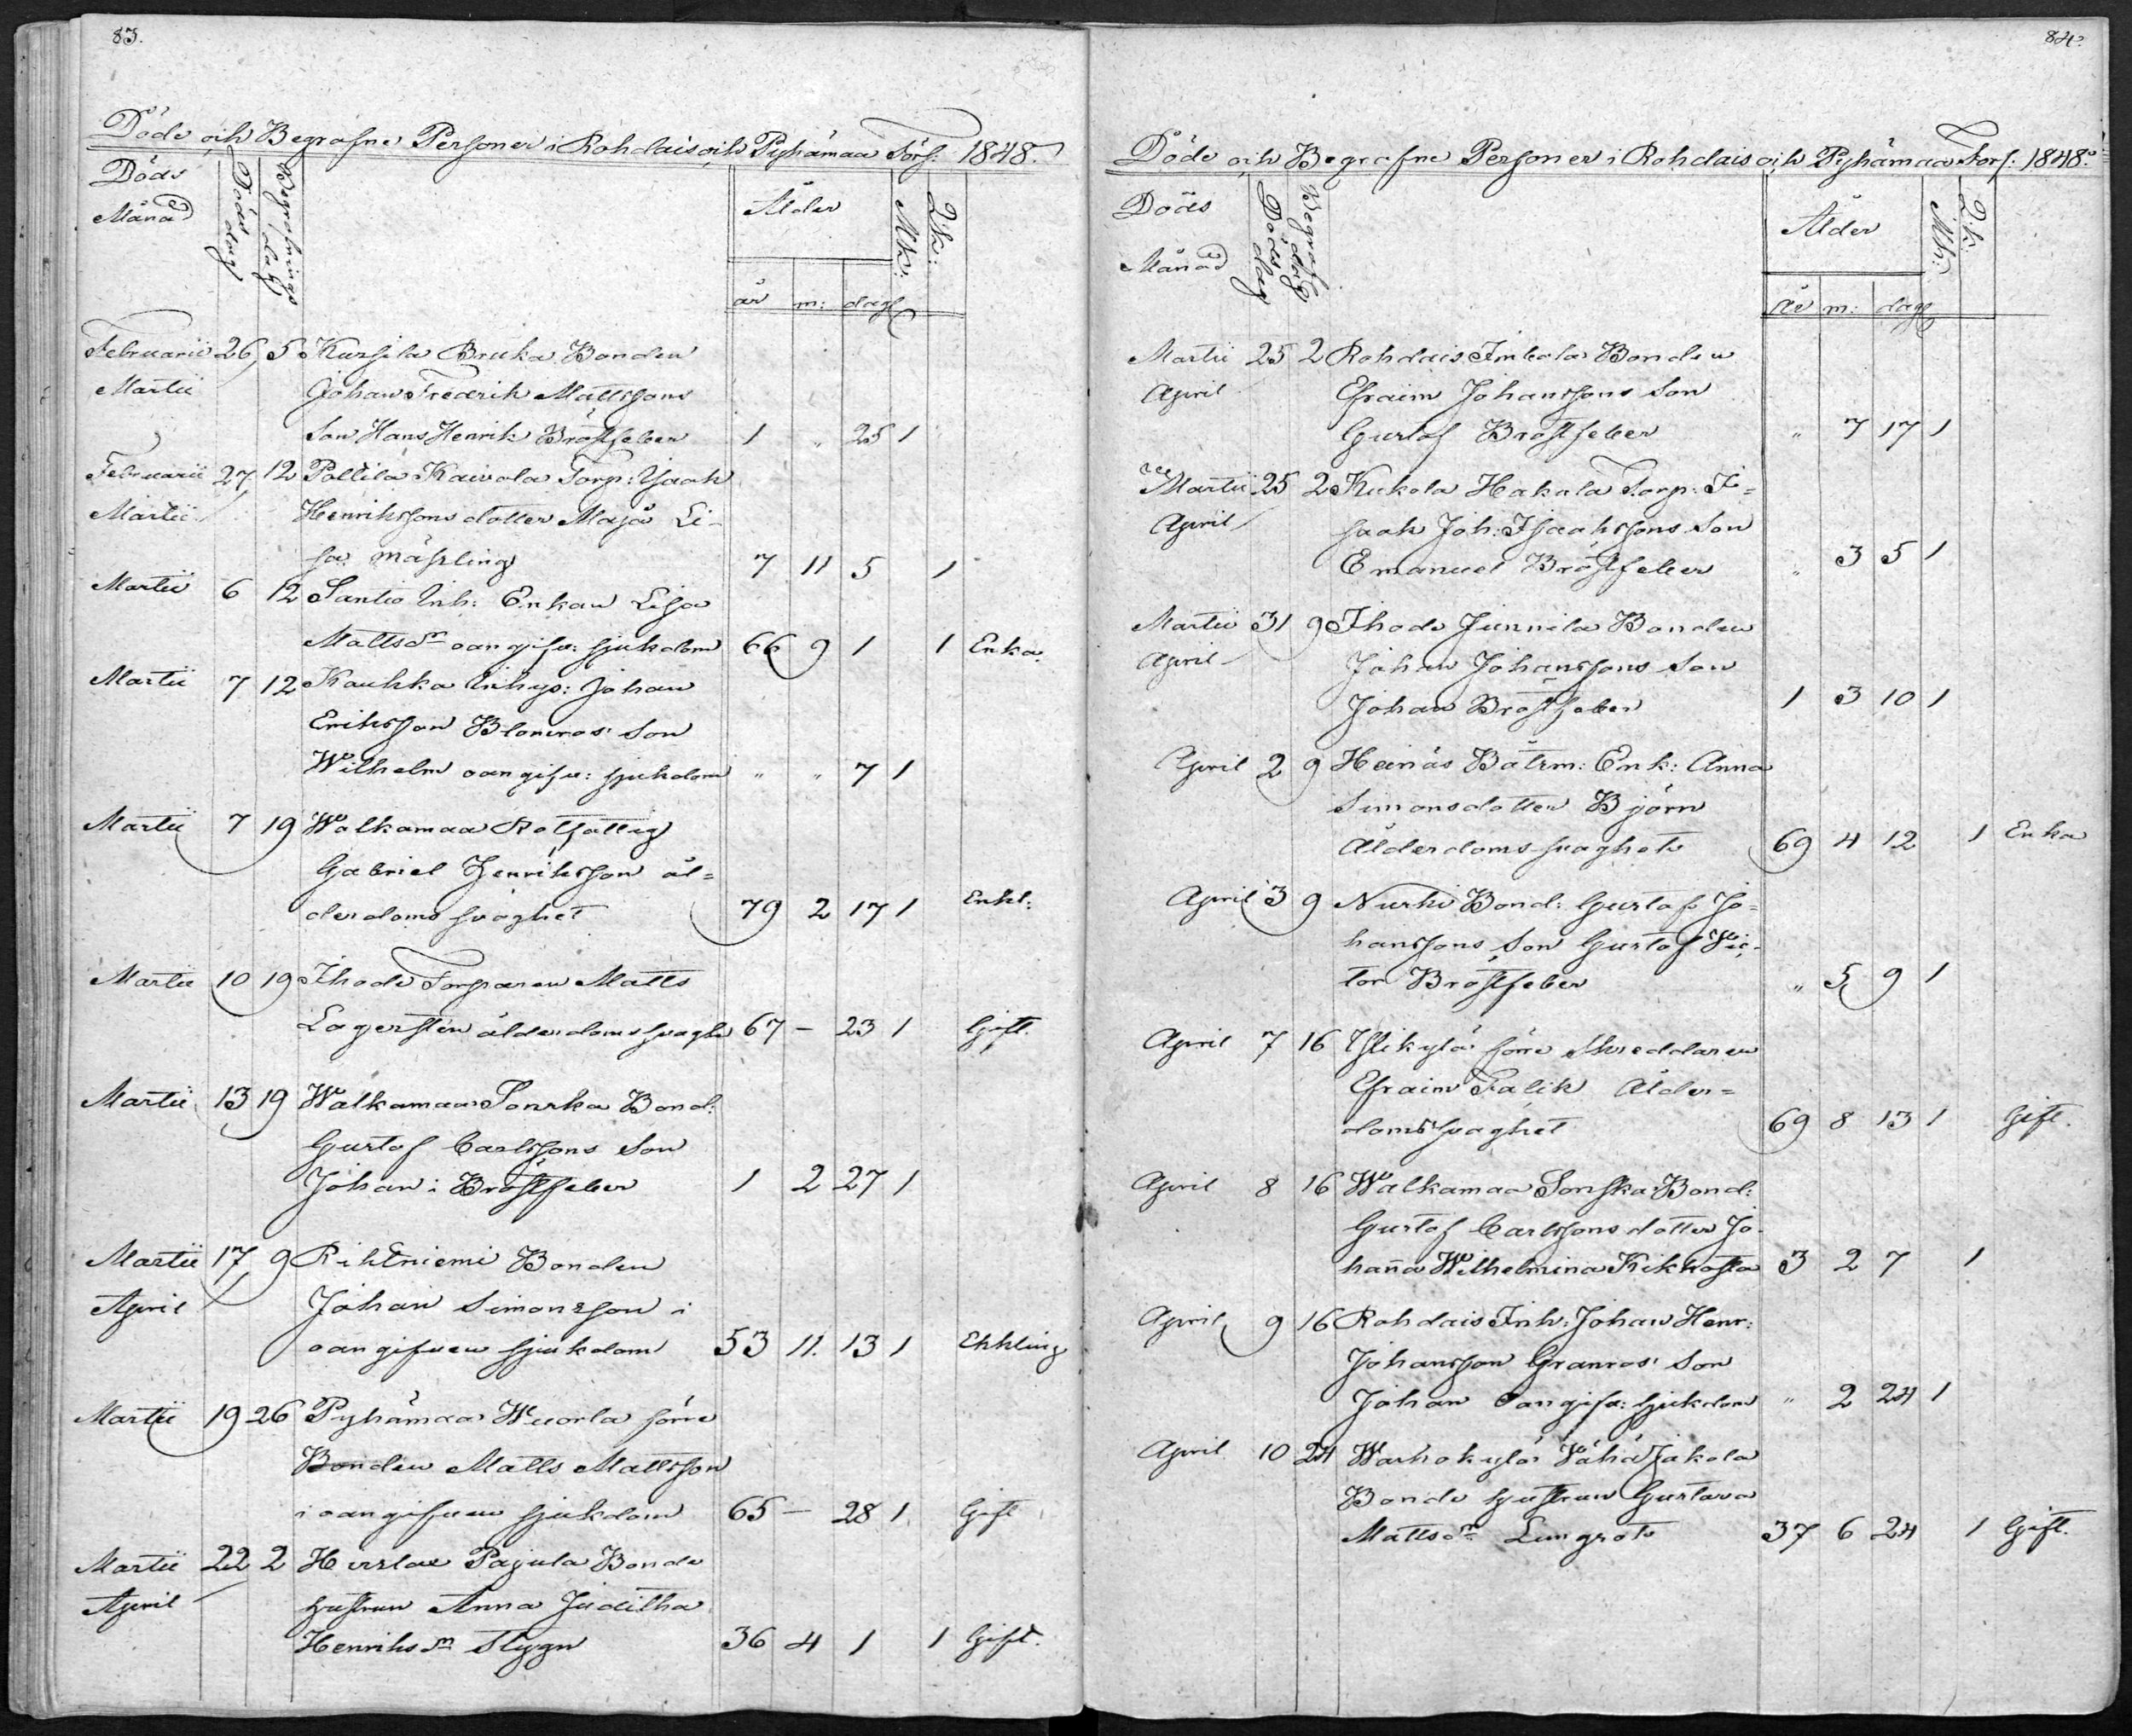 83.
Döde och Begrafne Personer i Rohdais och Pyhämaa Förs: 1848.
Döds Månad Döds dag Begrafnings dag Ålder Mk: Qk:
år m: dag
Februarii 26 5 Kursila Bruka Bonden
Martii Johan Fredrik Mattssons
Son Hans Henrik Bröstfeber 1 " 25 1
Februarii 27 12 Pollila Kaivola Torp: Isaak
Martii Henrikssons dotter Maja Li-
sa Mäsling 7 11 5 1
Martii 6 12 Santio Inh: Enkan Lisa
Mattsdr oangifv: sjukdom 66 9 1 1 Enka
Martii 7 12 Kaukka Inhys: Johan
Eriksson Blomros' Son
Wilhelm oangifv: sjukdom " " 7 1
Martii 7 19 Walkamaa Rotfattig
Gabriel Henriksson ål=
derdoms svaghet 79 2 17 1 Enkl:
Martii 10 19 Ihode Torparen Matts
Lagersten ålderdomssvagh 67 - 23 1 Gift.
Martii 13 19 Walkamaa Sonska Bond:
Gustaf Carlssons Son
Johan i Bröstfeber 1 2 27 1
Martii 17 9 Rihtniemi Bonden
April Johan Simonsson i
oangifven sjukdom 53 11. 13 1 Ehkling
Martii 19 26 Pyhämaa Wuorla förre
Bonden Matts Mattsson
i oangifven sjukdom 65 - 28 1 Gift
Martii 22 2 Hirslax Pajula Bonde
April hustrun Anna Juditha
Henriksdr Stygn 36 4 1 1 Gift.
84.
Döde och Begrafne Personer i Rohdais och Pyhämaa Förs: 1848.
Döds Månad Döds dag Begraf dag Ålder Mk: Qk:
År m: dag
Martii 25 2 Rohdais Imbola Bonden
April Efraim Johanssons Son
Gustaf Bröstfeber " 7 17 1
Martii 25 2 Kukola Hakala Torp: I=
April saak Joh: Isaakssons Son
Emanuel Bröstfeber " 3 5 1
Martii 31 9 Ihode Junnila Bonden
April Johan Johanssons Son
Johan Bröstfeber 1 3 10 1
April 2 9 Heinäs Båtsm: Enk: Anna
Simonsdotter Björn
Ålderdoms svaghet 69 4 12 1 Enka
April 3 9 Nurki Bond: Gustaf Jo=
hanssons Son Gustaf Vic-
tor Bröstfeber " 5 9 1
April 7 16 Ylikylä förre Skreddaren
Efraim Falck Ålder=
domssvaghet 69 8 13 1 Gift.
April 8 16 Walkamaa Sonska Bond:
Gustaf Carlssons dotter Jo-
hañna Wilhelmina Kikhosta 3 2 7 1
April 9 16 Rohdais Inh: Johan Henr:
Johansson Granros' Son
Johan oangifv: sjukdom " 2 24 1
April 10 24 Warhokylä Vähä Jakola
Bonde hustrun Gustava
Mattsdr Lungsot 37 6 24 1 Gift.